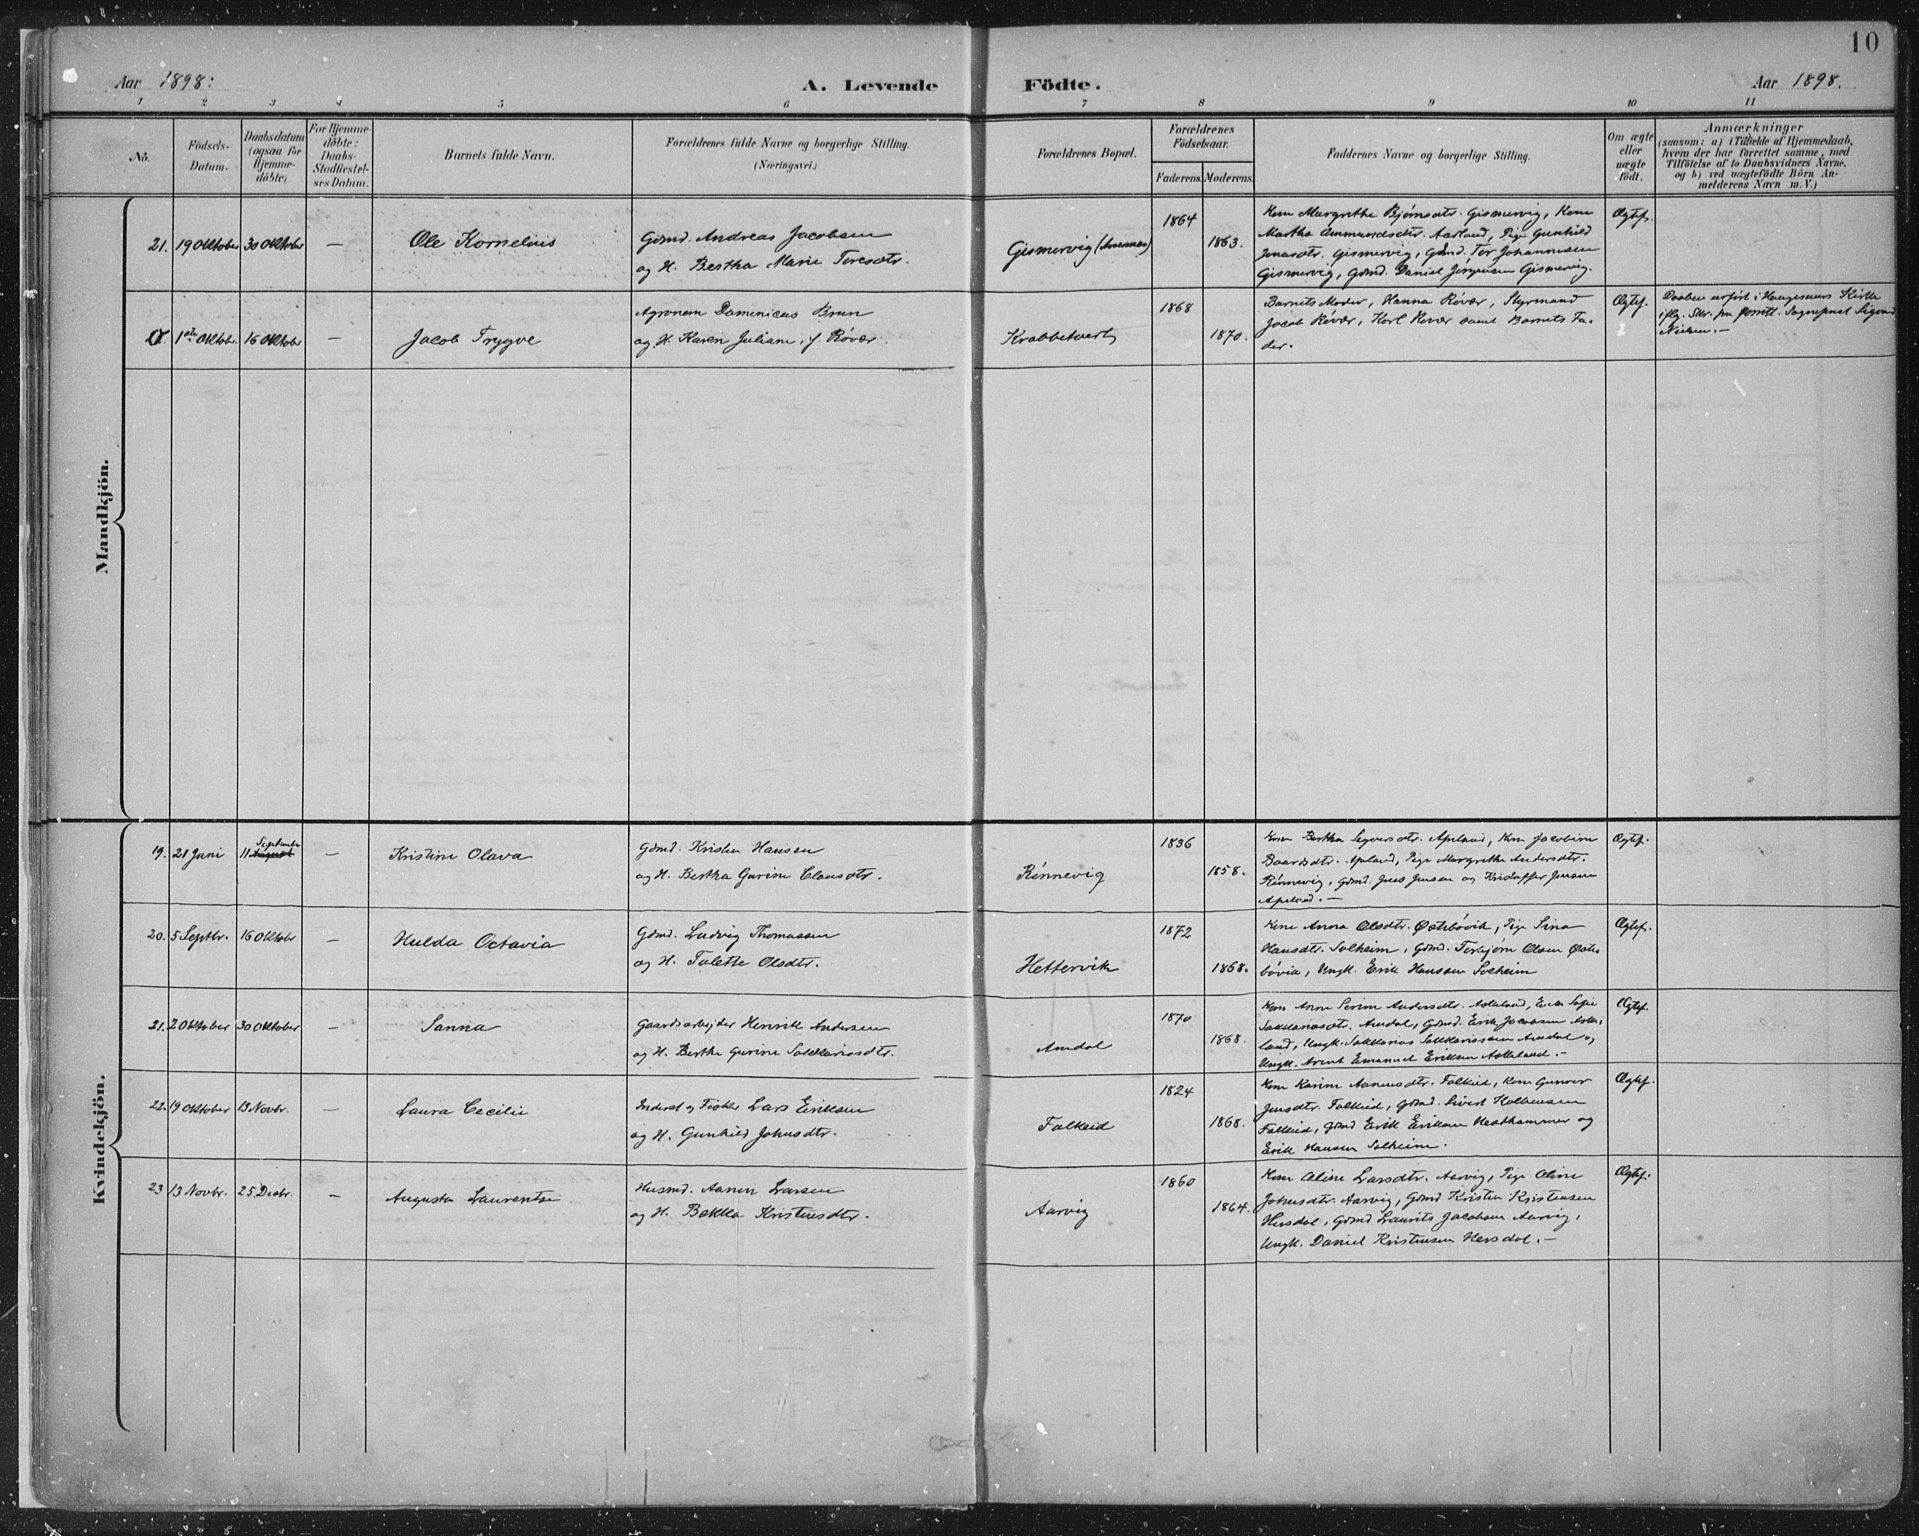 10
Aar 1898. A. Levende Födte. Aar 1898.
1 2 3 4 5 6 7 8 9 10 11
No.
Födsels-
Datum.
Daabsdatum
(ogsaa for
Hjemme-
döbte)
For Hjemme-
döbte:
Daabs-
Stadfæstel-
ses Datum.
Barnets fulde Navn.
Forældrenes fulde Navne og borgerlige Stilling.
(Næringsvei.)
Forældrenes Bopæl.
Forældrenes
Födselsaar.
Faderens. Moderens.
Faddernes Navne og borgerlige Stilling.
Om ægte
eller
uægte
födt.
Anmærkninger
(saasom: a) i Tilfælde af Hjemmedaab,
hvem der har forrettet samme, med
Tilföielse af to Daabsvidners Navne,
og b) ved uægtefödte Börn An-
melderens Navn m. V.)
Mandkjön.
21. 19 Oktober 30 Oktober —
Ole Kornelius
Gdmd. Andreas Jacobsen
og H. Bertha Marie Toresdtr.
Gismervig
1864
1863.
Kone Margrethe Bjørnsdtr. Gismervig, Kone
Martha Amundsdtr. Aarland, Pige Gunhild
Jonasdtr. Gismervig, Gdmd. Tor Johannesen
Gismervig, Gdmd. Daniel Jørgensen Gismervig.
Ægtef.
1ste Oktobr. 16 Oktober —
Jacob Trygve
Agronom Domenicus Brun
og H. Karen Juliane, f. Røvær.
1868
1870.
Barnets Moder, Hanna Røvær, Styrmand
Jacob Røvær, Karl Røvær samt Barnets Fa-
der.
Ægtef.
Daaben udført i Haugesunds Kirke
iflg. Skr. fra Sogneprest Sigvard
Nielsen. —
Kvindekjön.
19. 21 Juni 11 September —
Kristine Olava
Gdmd. Kristen Hansen
og H. Bertha Gurine Clausdtr.
Rönnevig
1836
1858.
Kone Bertha Sjursdtr. Apeland, Kone Jacobine
Baardsdtr. Apeland, Pige Margrethe Andersdtr.
Rönnevig, Gdmd. Jens Jensen og Kristoffer Jensen
Apeland. —
Ægtef.
20. 5 Septbr. 16 Oktobr —
Hulda Octavia
Gdmd. Ludvig Thomassen
og H. Talette Olsdtr.
Hettervik
1872
1868.
Kone Anna Olsdtr. Østebövik, Pige Sina
Hansdtr. Solheim, Gdmd. Torbjørn Olsen Øste-
bövik, Ungk. Erik Hansen Solheim
Ægtef.
21. 2 Oktober 30 Oktober —
Sanna
Gaardsarbejder Henrik Andersen
og H. Berthe Gurine Sakkariasdtr.
Amdal
1870
1868.
Kone Anne Serine Andersdtr. Askeland, Enke Sofie
Sakkariasdtr. Amdal, Gdmd. Erik Jacobsen Aske-
land, Ungk. Sakkarias Sakkariassen Amdal og
Ungk. Arent Emanuel Eriksen Askeland. —
Ægtef.
22. 19 Oktober 13 Novbr. —
Laura Cecilie
Inderst og Fisker Lars Eriksen
og H. Gunhild Johnsdtr.
Falkeid
1824
1868.
Kone Karine Aanensdtr. Falkeid, Kone Gunvor
Jensdtr. Falkeid, Gdmd. Sivert
Falkeid, Gdmd Erik Eriksen Hesthammer og
Erik Hansen Solheim.
Ægtef.
23 13 Novbr. 25 Decbr. —
Augusta Laurentse
Husmd. Aanen Larsen
og H. Bekka Kristensdtr.
Aarvig
1860
1864.
Kone Oline Larsdtr. Aarvig, Pige Oline
Johnsdtr. Aarvig, Gdmd Kristen Kristensen
Hersdal, Gdmd Laurits Jacobsen Aarvig,
Ungk. Daniel Kristensen Hersdal. —
Ægtef.